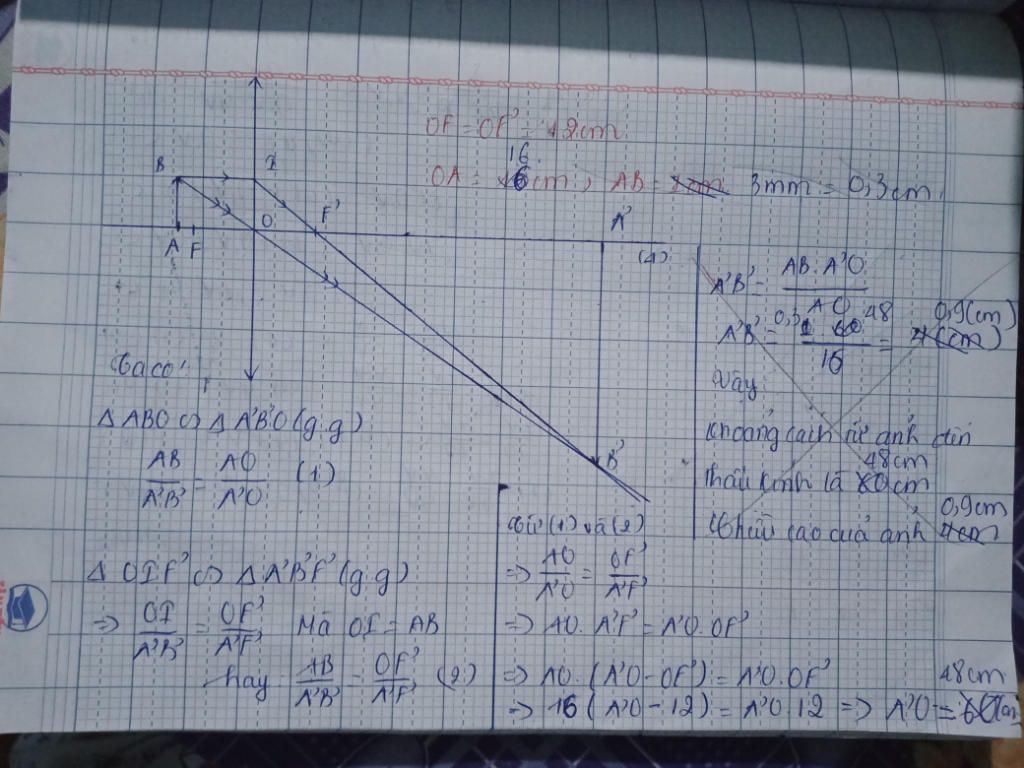 OF = OF' = 12cm
OA = 16cm, AB = 3mm = 0,3cm
B I
F'
A'
A F O
(Δ)
B'
A'B' = AB.A'O / AO
A'B' = 0,3 48 / 16 = 0,9(cm)
Vậy
Khoảng cách từ ảnh đến
thấu kính là 48cm
Chiều cao của ảnh 0,9cm
Ta có:
Δ ABO ∽ Δ A'B'O (g.g)
AB / A'B' = AO / A'O (1)
Δ OIF' ∽ Δ A'B'F' (g.g)
=> OI / A'B' = OF' / A'F' Mà OI = AB
hay AB / A'B' = OF' / A'F' (2)
Từ (1) và (2)
=> AO / A'O = OF' / A'F'
=> AO. A'F' = A'O. OF'
=> AO. (A'O - OF') = A'O. OF'
=> 16 (A'O - 12) = A'O 12 => A'O = 48cm